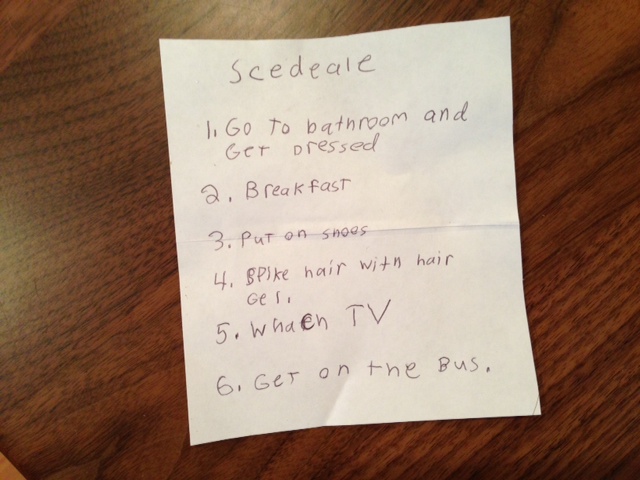 Scedeale
1. Go To bathroom and
Get Dressed
2. Breakfast
3. Put on shoes
4. Spike hair with hair
Gel.
5. Whacn TV
6. Get on the Bus.